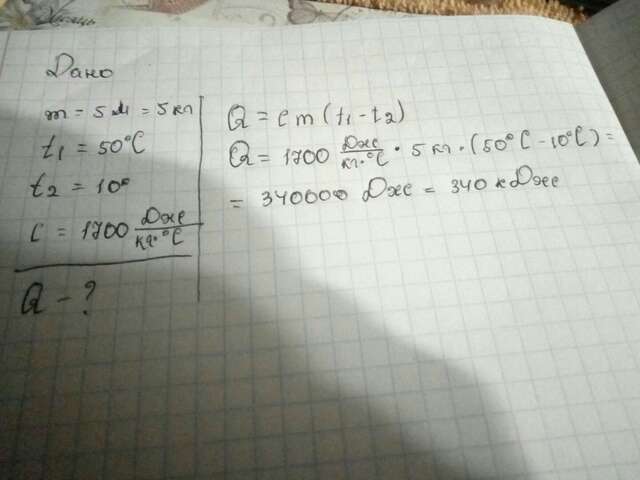 Дано
m = 5 л = 5 кг
t₁ = 50°C
t₂ = 10°
c = 1700 Дж/кг·°C
Q - ?
Q = cm(t₁ - t₂)
Q = 1700 Дж/кг·°C · 5 кг · (50°C - 10°C) =
= 340000 Дж = 340 кДж